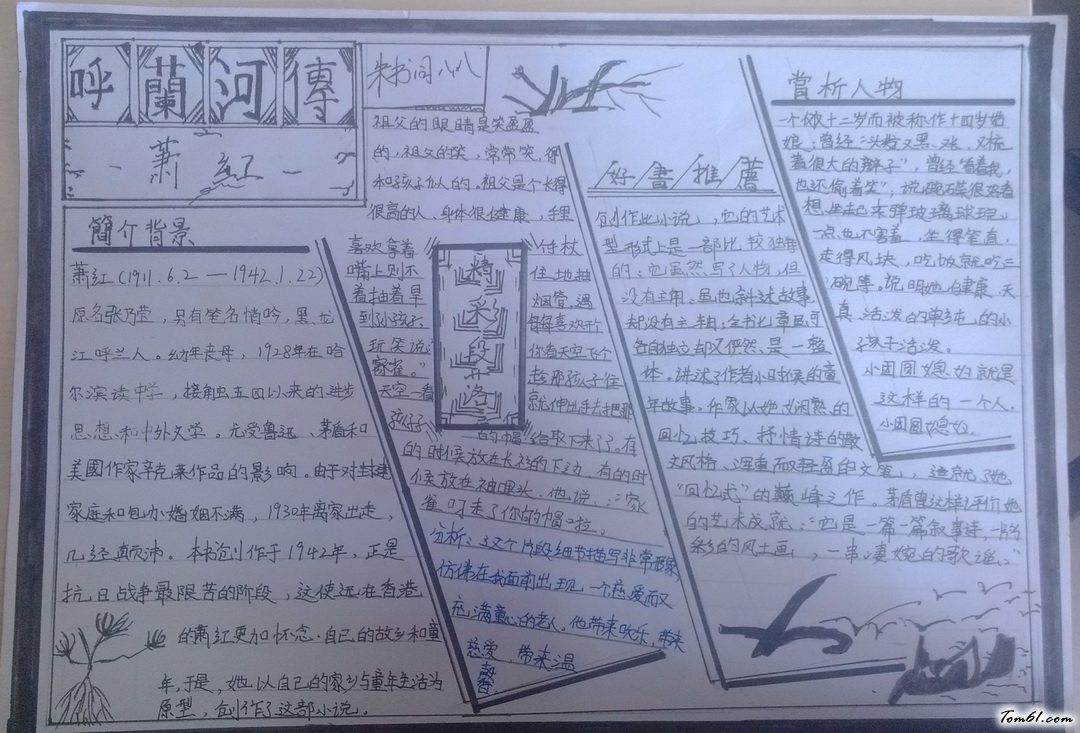 呼蘭河傳
蕭紅
簡介背景
萧红(1911.6.2—1942.1.22)
原名张乃莹,另有笔名悄吟,黑龙
江呼兰人。幼年丧母,1928年在哈
尔滨读中学,接触五四以来的进步
思想和中外文学。尤受鲁迅、茅盾和
美國作家辛克莱作品的影响。由于对封建
家庭和包办婚姻不满,1930年离家出走,
几经颠沛。本书创作于1942年,正是
抗日战争最限苦的阶段,这使远在香港
的萧红更加怀念自己的故乡和童
年,于是,她以自己的家乡与童年生活为
原型,创作了这部小说。
祖父的眼睛是笑盈盈
的,祖父的笑,常常笑得
和孩子似的。祖父是个长得
很高的人,身体很健康,手里
喜欢拿着
手杖
嘴上则不
住地抽
着抽着旱
烟管,遇
到小孩子,
每每喜欢开个
玩笑说:
你看天空飞个
家雀。”
趁那孩子往
天空一看
就伸出手去把那
孩子
的帽给取下来了。有
的时候放在长衫的下边,有的时
候放在袖里头。他说:“家
雀叼走了你的帽啦。
精彩段落
分析:这个片段细节描写非常形象,
仿佛在我面前出现一个慈爱而又
充满童心的老人。他带来欢乐,带来
慈爱,带来温
馨
好書推薦
创作此小说,它的艺术
型形式上是一部比较独特
的:它虽然写了人物,但
没有主角,虽也叙述故事,
却没有主轴,全书七章虽可
各自独立却又俨然是一整
体。讲述了作者小时候的童
年故事。作家以她娴熟的
回忆技巧、抒情诗的散
文风格、浑重而轻盈的文笔,造就了她
“回忆式”的巅峰之作。茅盾曾这样评价她
的艺术成就:“它是一篇一篇叙事诗,一片多
彩的风土画,一串凄婉的歌谣。”
赏析人物
一个做十二岁而被称作十四岁姑
娘,曾经“头发又黑又长,梳
着很大的辫子”,曾经“看看我,
也还偷着笑”,说碗碟很好看
想坐起来弹玻璃球玩。
一点也不害羞,坐得笔直,
走得风快,吃饭就吃三
碗等。说明她健康、天
真、活泼的单纯的小
孩子活泼。
小团圆媳妇就是
这样的一个人。
小团圆媳妇。
Tom61.com